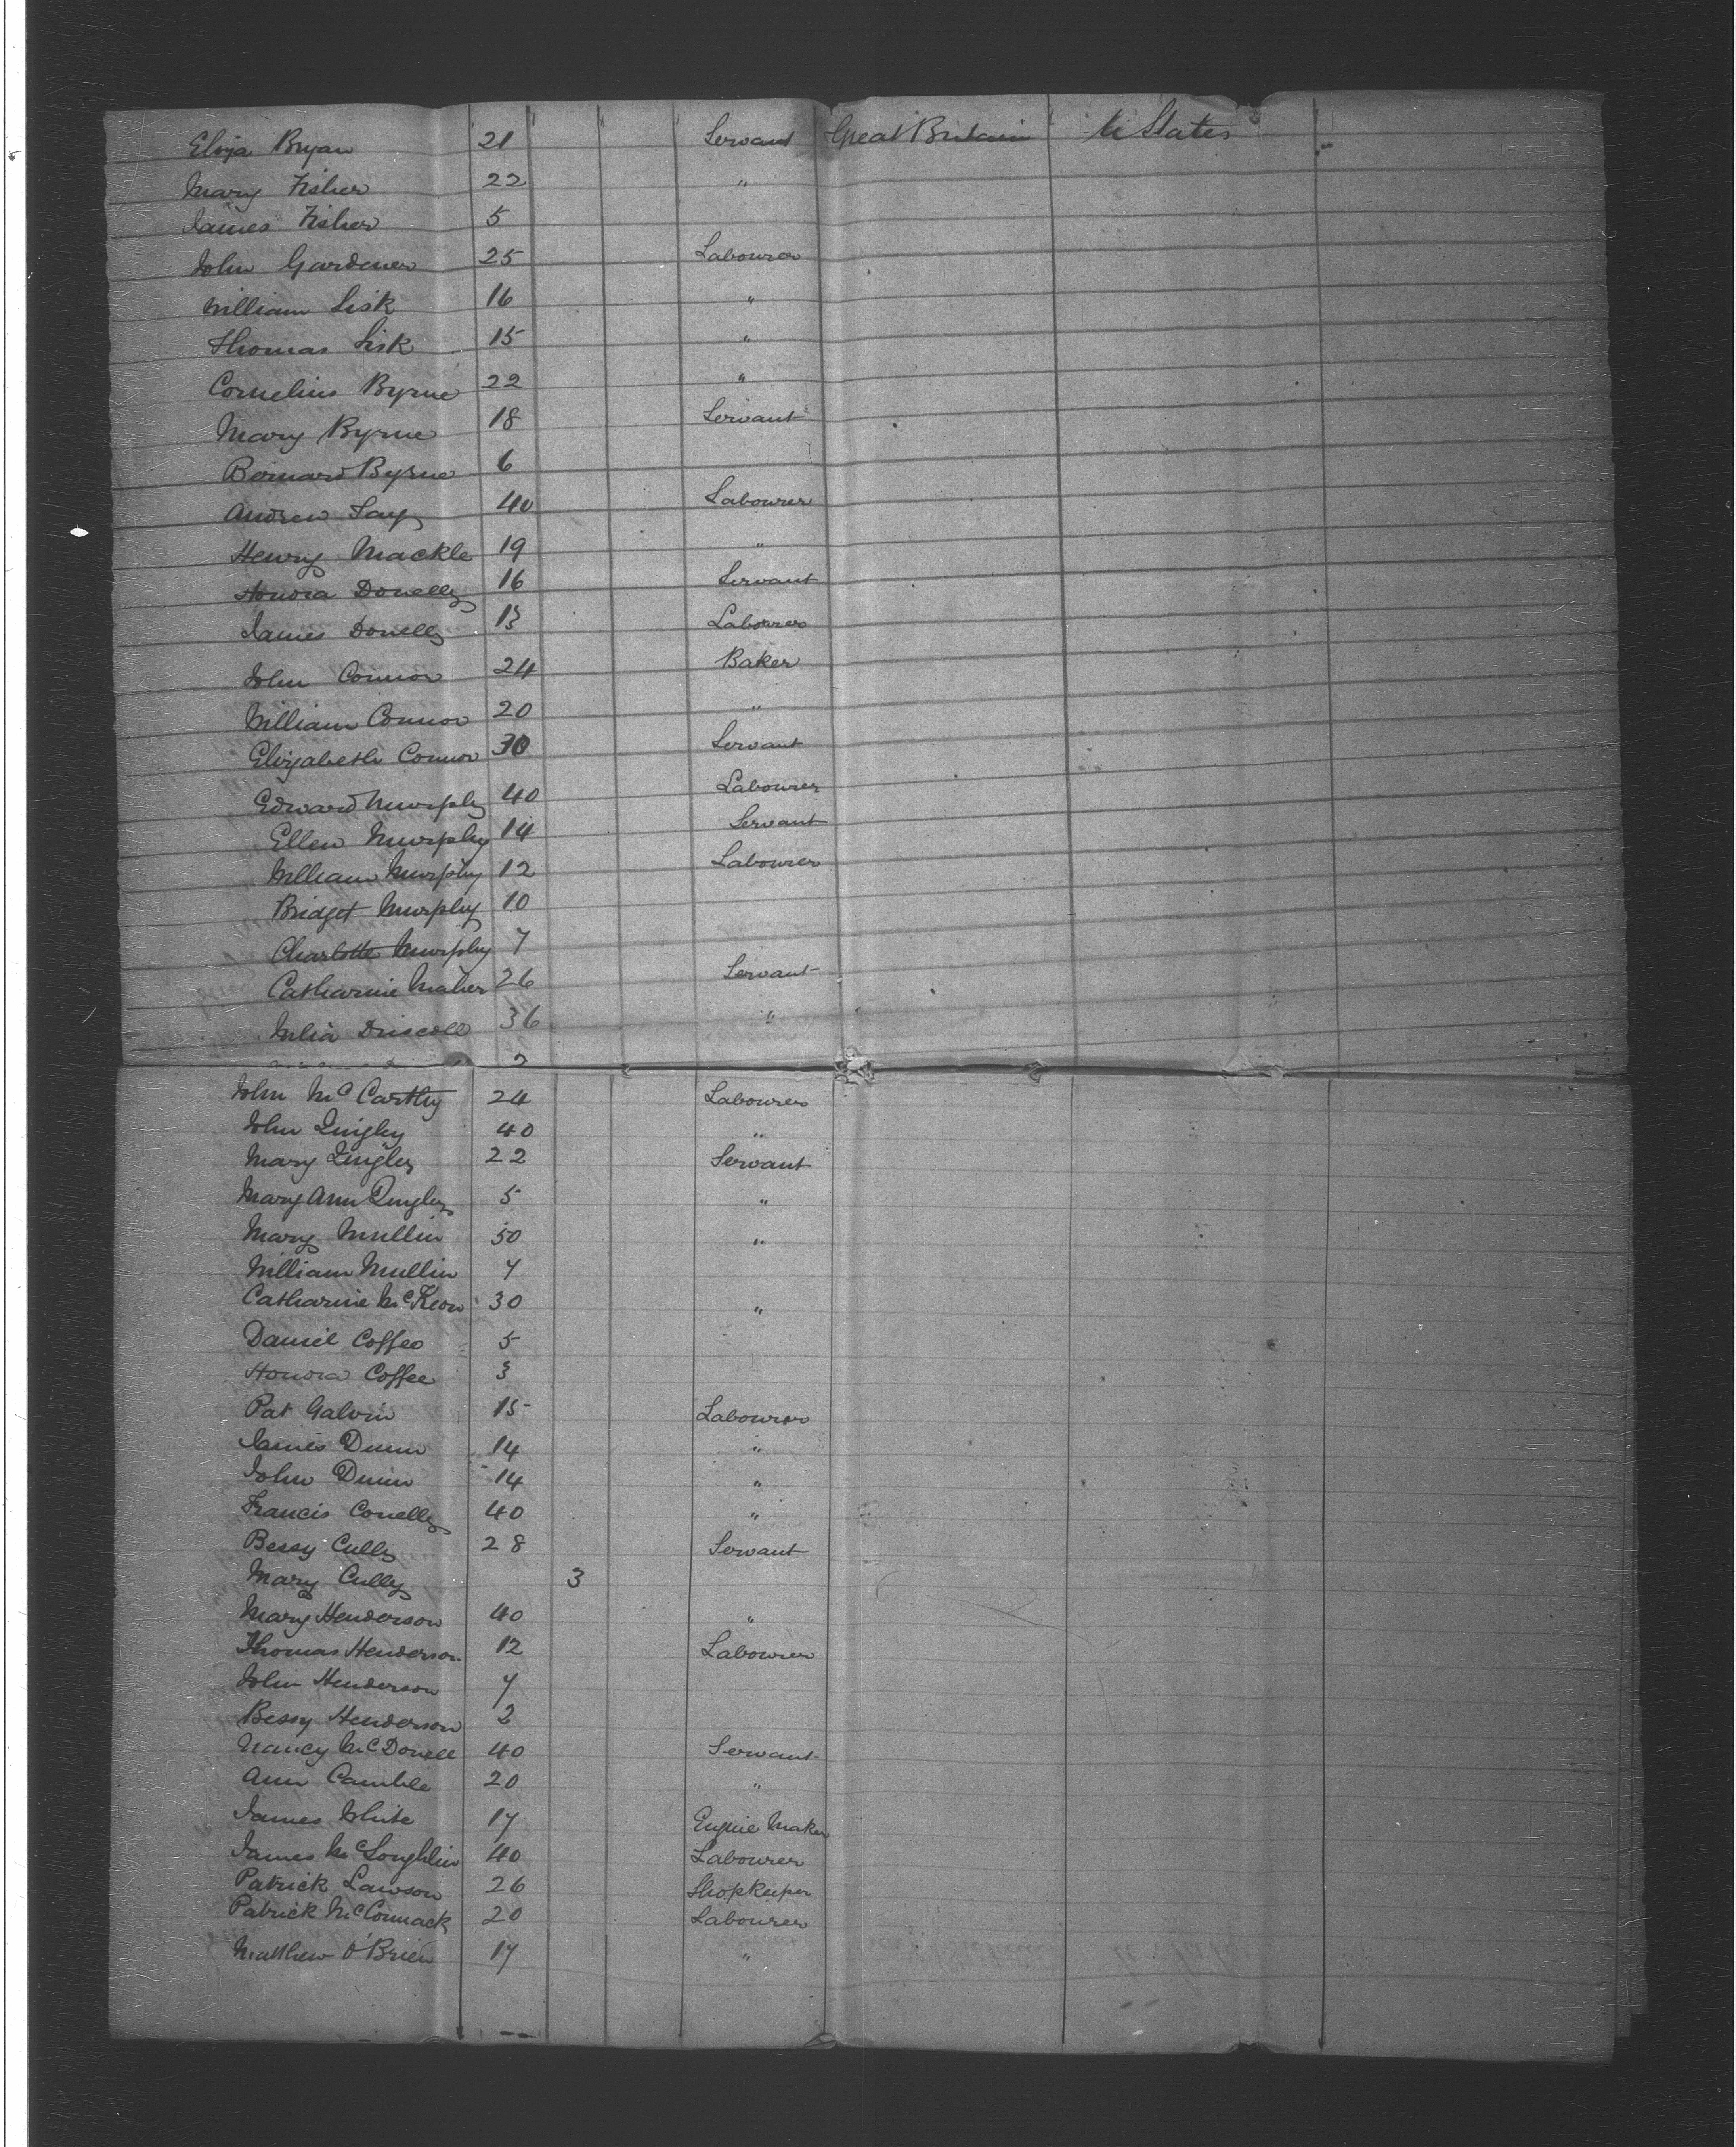 Eliza Bryan 21 Servant Great Britain U States
Mary Fisher 22 "
James Fisher 5
John Gardener 25 Labourer
William Sisk 16 "
Thomas Sisk 15 "
Cornelius Byrne 22 "
Mary Byrne 18 Servant
Bernard Byrne 6
Andrew 40 Labourer
Henry Mackle 19 "
Honora Donelly 16 Servant
James Donelly 13 Labourer
John Connor 24 Baker
William Connor 20 "
Elizabeth Connor 30 Servant
Edward Murphy 40 Labourer
Ellen Murphy 14 Servant
William Murphy 12 Labourer
Bridget Murphy 10
Charlotte Murphy 7
Catharine Maher 26 Servant
Julia Driscoll 36 "
2
John McCarthy 24 Labourer
John Quigley 40 "
Mary Quigley 22 Servant
Mary Ann Quigley 5 "
Mary Mullin 50 "
William Mullin 7
Catharine McKeon 30 "
Daniel Coffee 5
Honora Coffee 3
Pat Galvin 15 Labourer
James Dunn 14 "
John Dunn 14 "
Francis Conelly 40 "
Bessy Cully 28 Servant
Mary Cully 3
Mary Henderson 40 "
Thomas Henderson 12 Labourer
John Henderson 7
Bessy Henderson 2
Nancy McDonell 40 Servant
Ann Camble 20 "
James White 17 Engine Maker
James McLoughlin 40 Labourer
Patrick Lawson 26 Shopkeeper
Patrick McCormack 20 Labourer
Matthew O'Brien 17 "